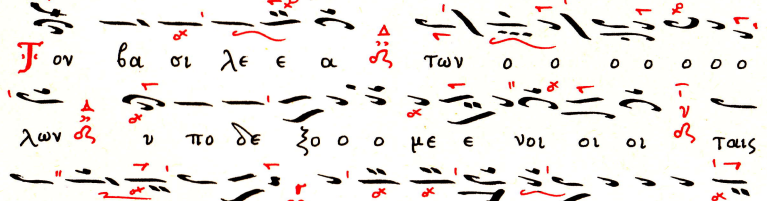 Τον βα σι λε ε α των ο ο ο ο ο ο ο
λων υ πο δε ξο ο ο με ε νοι οι οι ταις